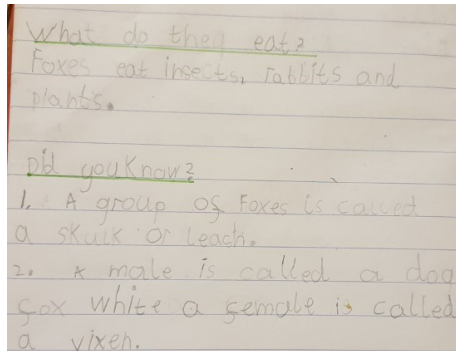 What do they eat?
Foxes eat insects, rabbits and
plants.
Did you Know?
1. A group of Foxes is called
a skulk or leach.
2. A male is called a dog
fox white a female is called
a vixen.